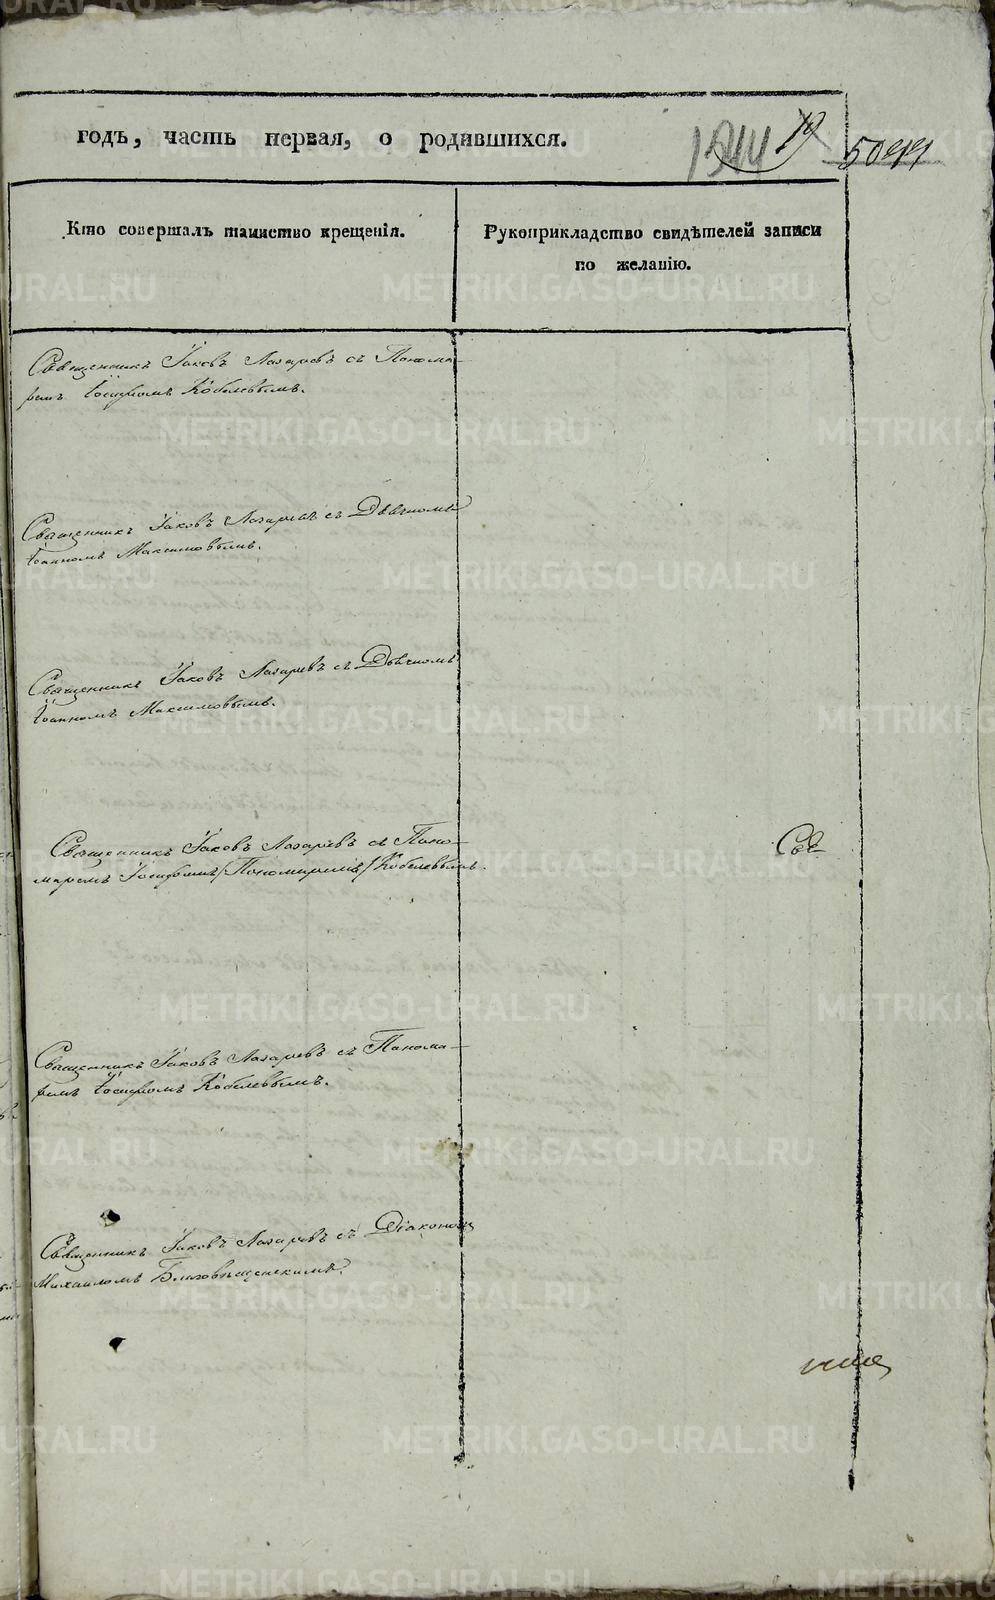 годъ, часть первая, о родившихся.
19
5099
Кто совершалъ таинство крещенія.
Рукоприкладство свидѣтелей записи
по желанію.
Священникъ Іаковъ Лазаревъ съ Понома-
ремъ Іосифомъ Кобелевымъ.
Священникъ Іаковъ Лазаревъ съ Дьячкомъ
Іоанномъ Максимовымъ.
Священникъ Іаковъ Лазаревъ съ Дьячкомъ
Іоанномъ Максимовымъ.
Священникъ Іаковъ Лазаревъ съ Поно-
маремъ Іосифомъ /Пономаремъ/ Кобелевымъ.
Священникъ Іаковъ Лазаревъ съ Понома-
ремъ Іосифомъ Кобелевымъ.
Священникъ Іаковъ Лазаревъ съ Діакономъ
Михаиломъ Благовѣщенскимъ.
METRIKI.GASO-URAL.RU